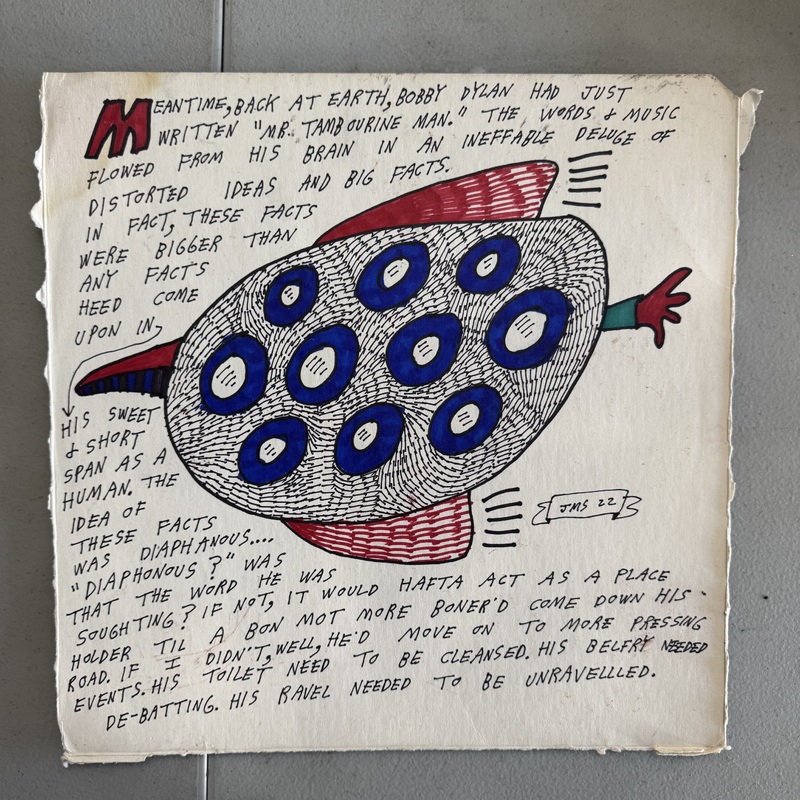 MEANTIME, BACK AT EARTH, BOBBY DYLAN HAD JUST
WRITTEN "MR. TAMBOURINE MAN." THE WORDS & MUSIC
FLOWED FROM HIS BRAIN IN AN INEFFABLE DELUGE OF
DISTORTED IDEAS AND BIG FACTS.
IN FACT, THESE FACTS
WERE BIGGER THAN
ANY FACTS
HEED COME
UPON IN
HIS SWEET
& SHORT
SPAN AS A
HUMAN. THE
IDEA OF
THESE FACTS
WAS DIAPHANOUS....
"DIAPHONOUS?" WAS
THAT THE WORD HE WAS
SOUGHTING? IF NOT, IT WOULD HAFTA ACT AS A PLACE
HOLDER TIL A BON MOT MORE BONER'D COME DOWN HIS
ROAD. IF I DIDN'T, WELL, HE'D MOVE ON TO MORE PRESSING
EVENTS. HIS TOILET NEED TO BE CLEANSED. HIS BELFRY NEEDED
DE-BATTING. HIS RAVEL NEEDED TO BE UNRAVELLLED.
JMS 22